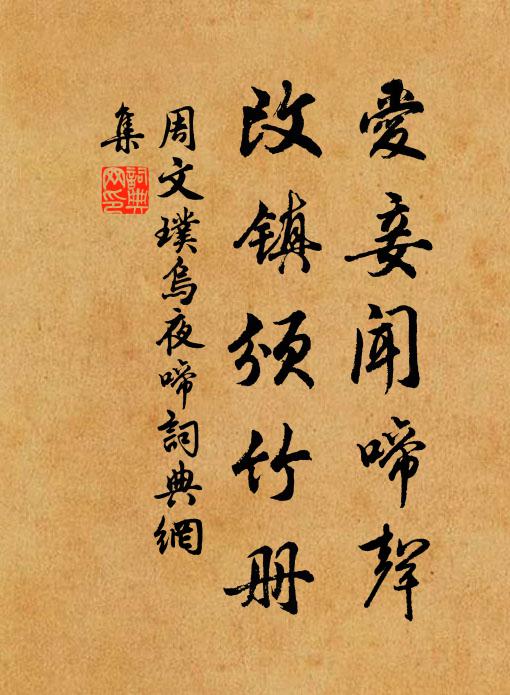 愛妾聞啼聲
改镇頒竹册
周文璞烏夜啼詞典網
集
詞典
网印